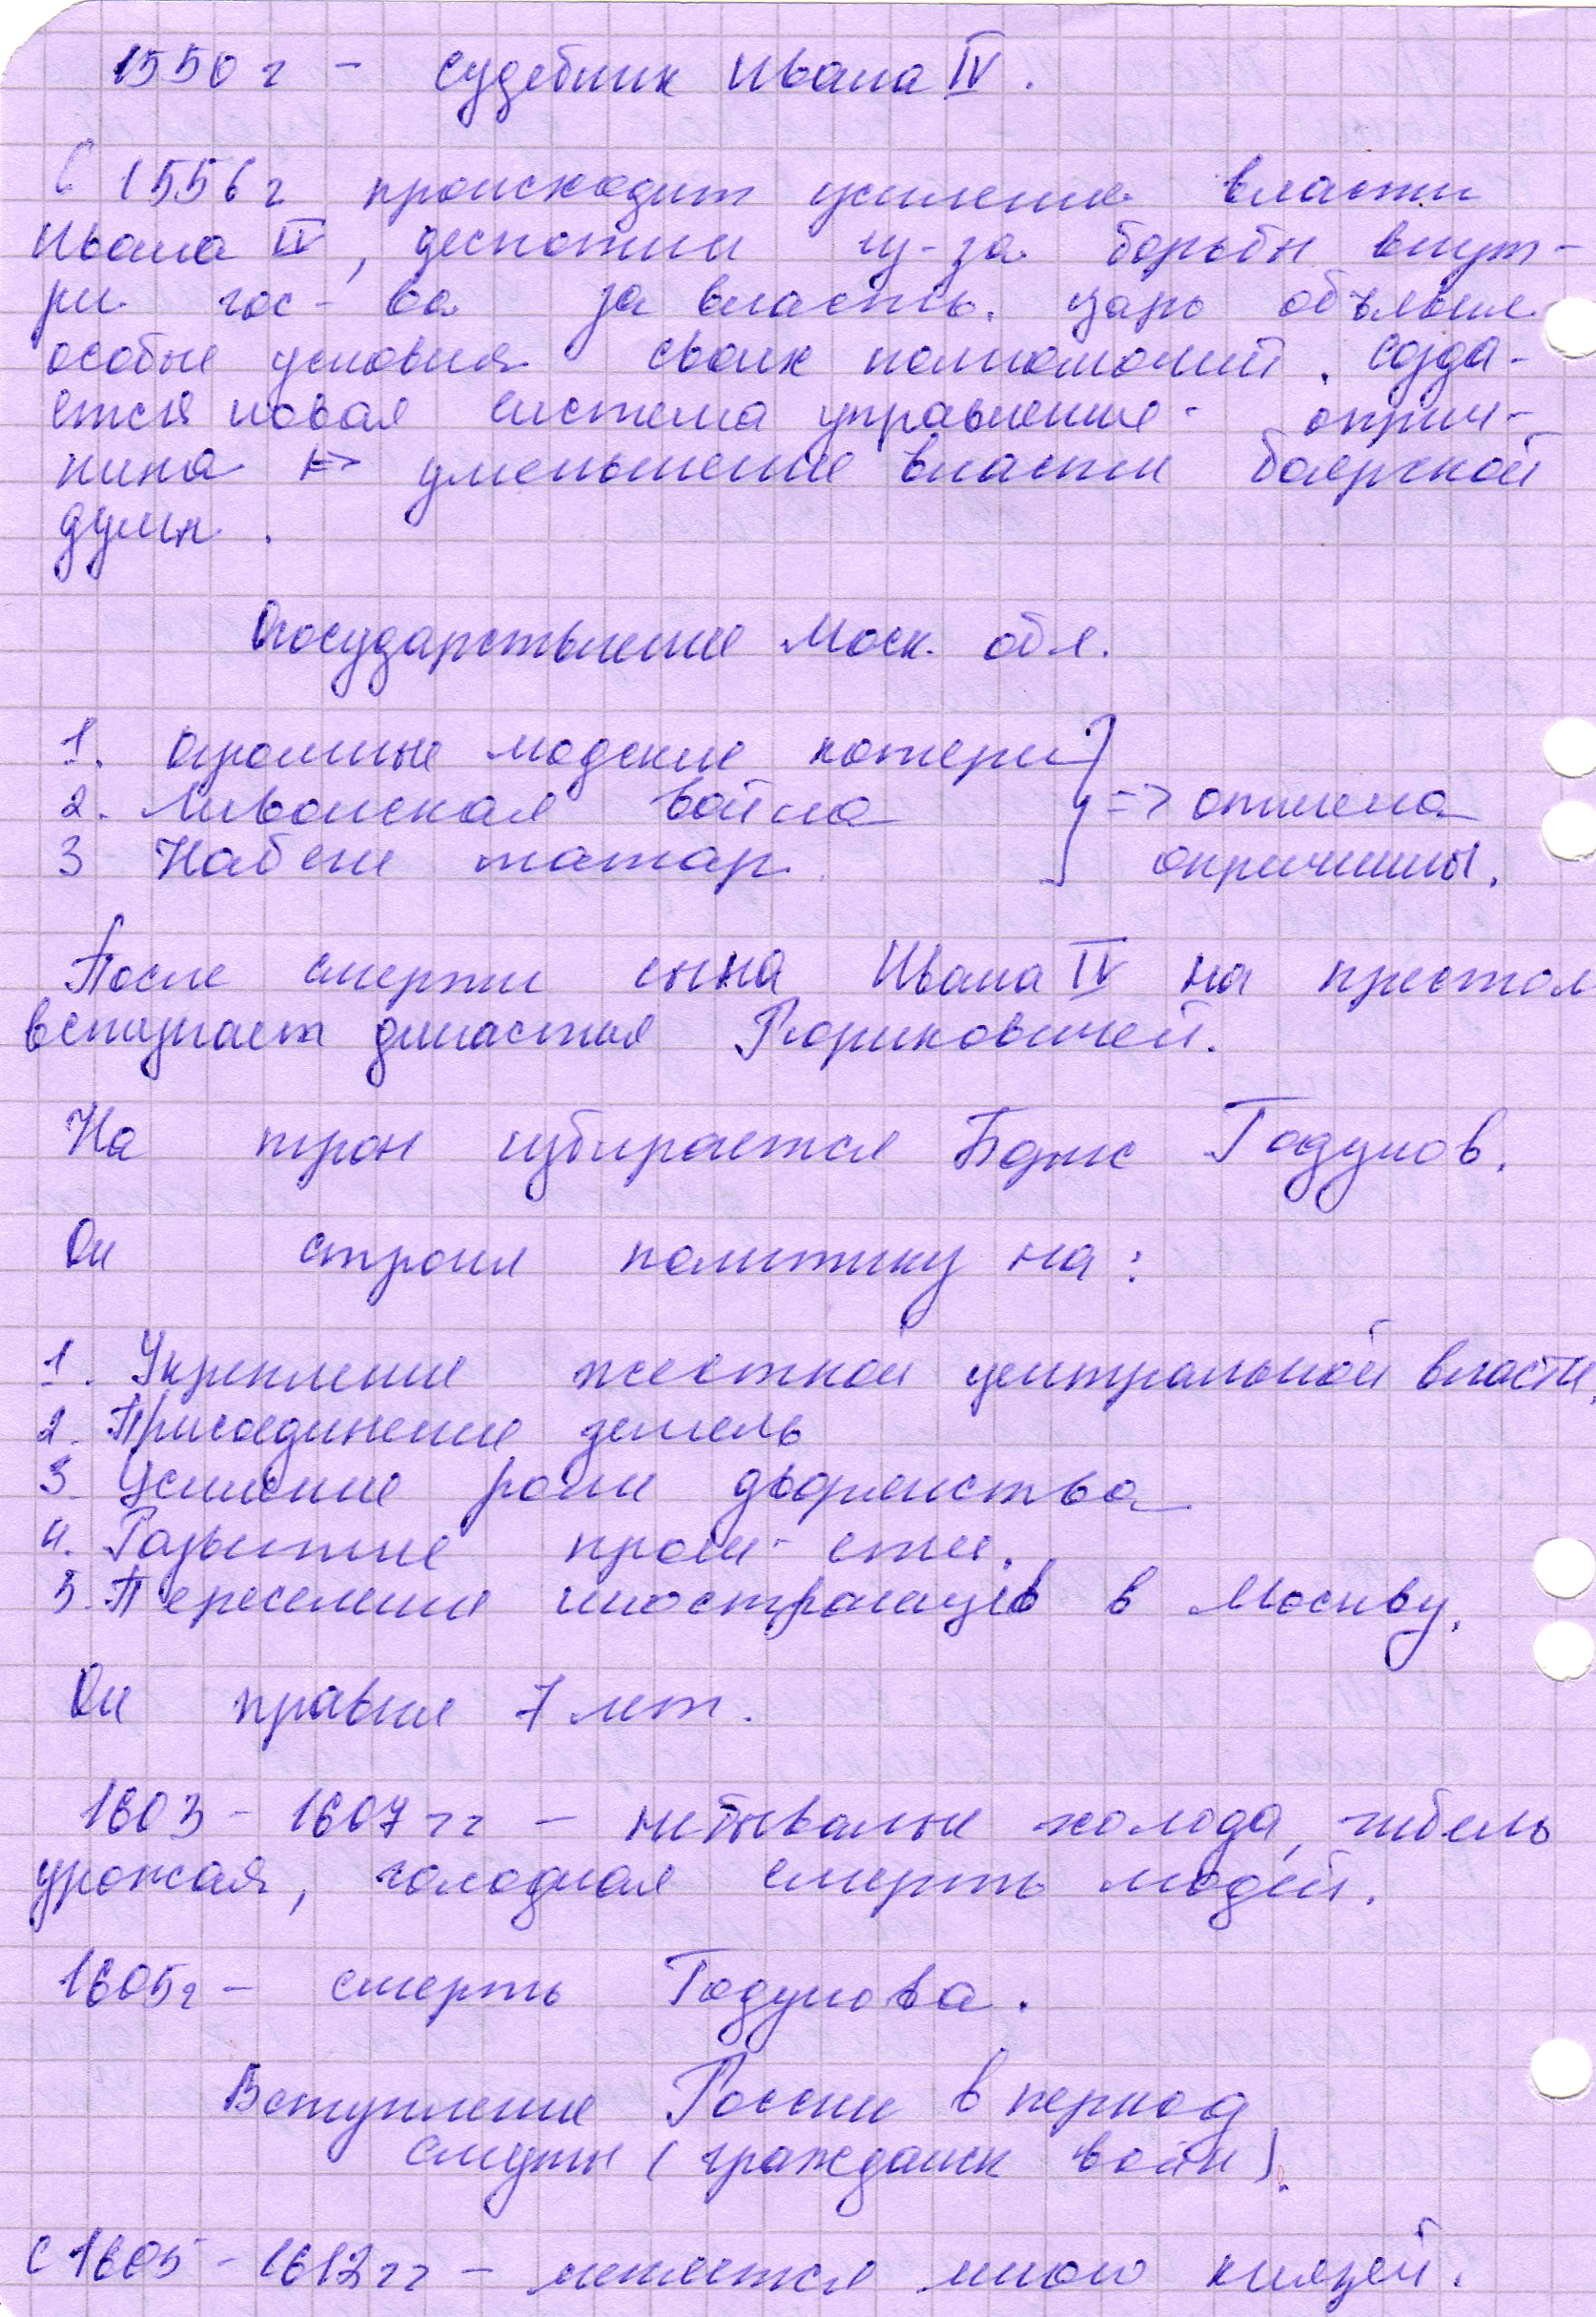 1550 г - Судебник Ивана IV.
С 1556 г происходит усиление власти
Ивана IV, деспотии из-за борьбы внут-
ри гос-ва за власть. Царь объявил
особые условия своих полномочий. Созда-
ется новая система управления - оприч-
нина => уменьшение власти боярской
думы.
Государственные Моск. обл.
1. Огромные людские потери
2. Ливонская война => отмена
3 Набеги татар опричнины.
После смерти сына Ивана IV на престол
вступает династия Рюриковичей.
На трон избирается Борис Годунов.
Он строил политику на:
1. Укрепление жесткой центральной власти.
2. Присоединение земель
3. Усиление роли дворянства
4. Развитие пром-сти.
5. Переселения иностранцев в Москву.
Он правил 7 лет.
1603 - 1607 гг - небывалые холода, гибель
урожая, голодная смерть людей.
1605 г - смерть Годунова.
Вступление России в период
смуты (гражданск войн).
С 1605 - 1612 гг - меняется много князей.